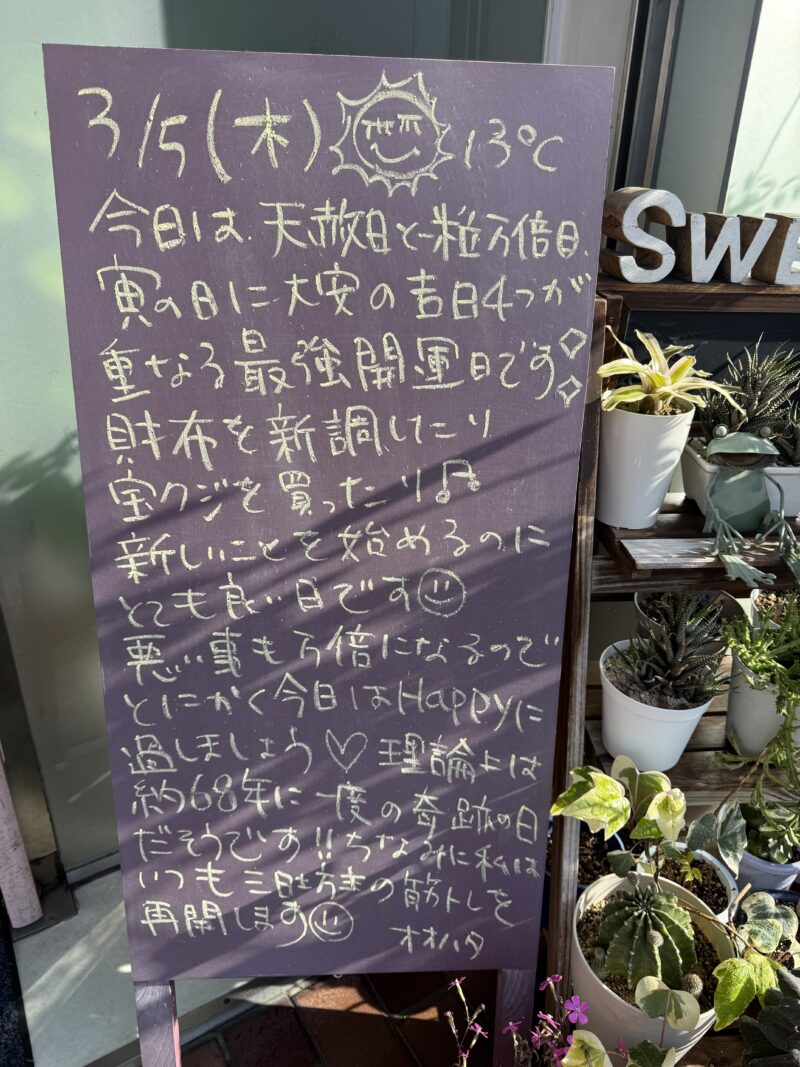 3/5(木) 13℃
今日は、天赦日と一粒万倍日、
寅の日に大安の吉日4つが
重なる最強開運日です
財布を新調したり
宝クジを買ったり♫
新しいことを始めるのに
とても良い日です☺
悪い事も万倍になるので
とにかく今日はHappyに
過しましょう♡ 理論上は
約68年に一度の奇跡の日
だそうです!!ちなみに私は
いつも三日坊主の筋トレを
再開します☺ オオハタ
SWE